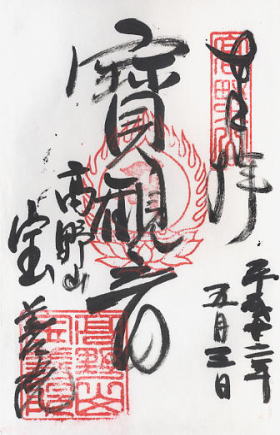 奉拝
平成十二年
五月三日
寶観音
高野山
宝善院